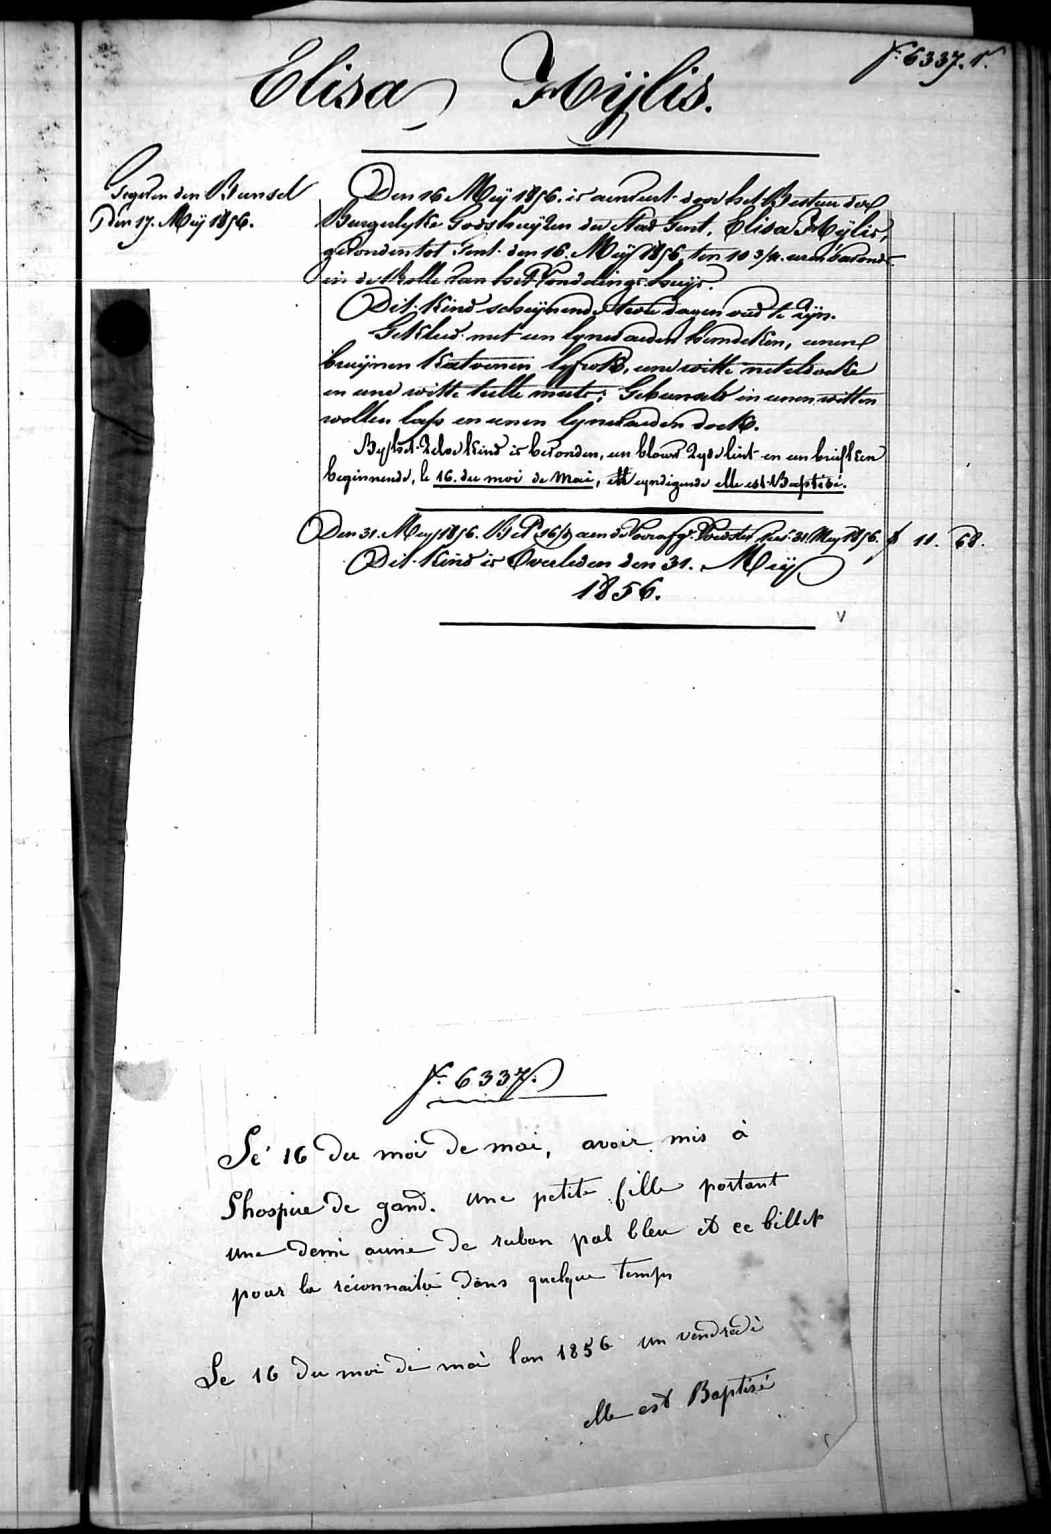 fº 6337. r.
Elisa Mÿlis.
Gegeven den Bunsel
den 17. Meÿ 1856.
Den 16 Meÿ 1856. is aenveert door het Bestuer der
Burgerlyke Godshuyzen der Stad Gent, Elisa Mÿlis,
gevonden tot Gent den 16. Meÿ 1856, ten 10 3/4 uren 's avonds
in de Rolle van het Vondelings huys.
Dit Kind schynende twee dagen oud te zijn.
Gekleed met een lynwaeden hemdeken, eenen
bruynen Katoenen lyfrok, eene witte neteldoeke
en eene witte tulle muts; Gebunseld in eenen witten
wollen lap en eenen lynwaeden doek.
By het zelve Kind is bevonden, een blauw zyde lint en een briefken
beginnende, le 16. du moi de Mai, eyndigende elle est Baptisé.
Den 31. Mey 1856. Bet. aen de Voedster 31 Mey 1856. f 11. 68.
Dit Kind is Overleden den 31. Meÿ
1856.
v
fº 6337.
Lé 16 du moi de mai, avoir mis à
Lhospice de gand. une petite fille portant
une demi aune de ruban pal bleu et ce billet
pour la réconnaitre dans quelque temps
Le 16 du moi de mai lan 1856 un vendredi
elle est Baptisé